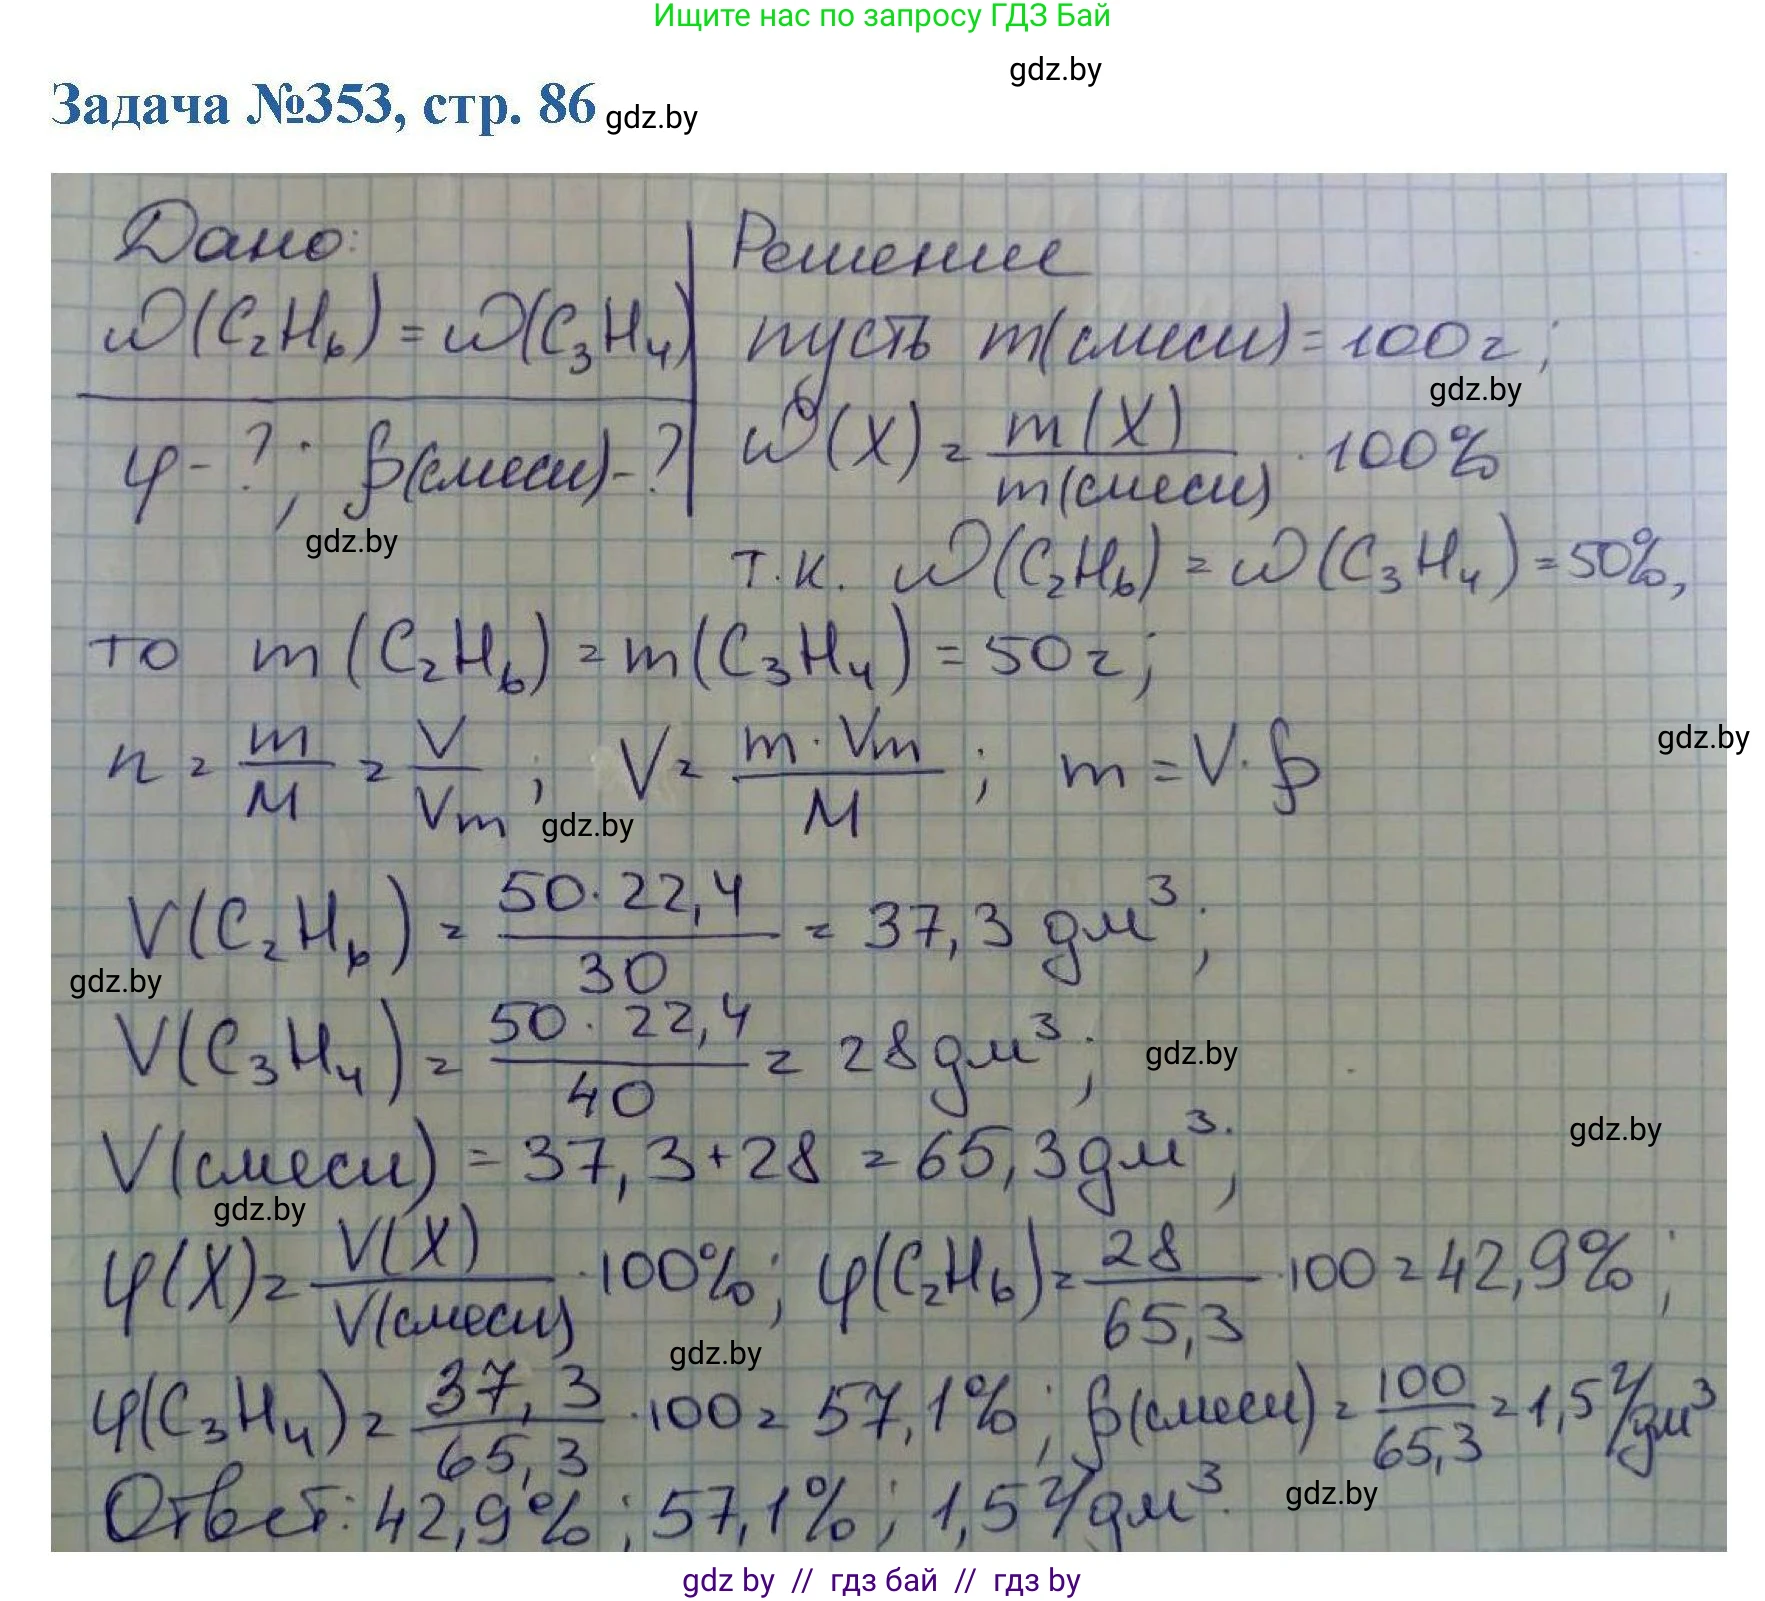 Ищите нас по запросу ГДЗ Бай
gdz.by
Задача №353, стр. 86 gdz.by
Дано:
ω(C₂H₆) = ω(C₃H₄)
φ - ?; ρ(смеси) - ?
gdz.by
Решение
пусть m(смеси) = 100 г;
gdz.by
ω(X) = m(X) / m(смеси) · 100%
т.к. ω(C₂H₆) = ω(C₃H₄) = 50%,
то m(C₂H₆) = m(C₃H₄) = 50 г;
n = m/M = V/Vm; V = m·Vm / M; m = V·ρ
gdz.by
gdz.by
V(C₂H₆) = 50·22,4 / 30 = 37,3 дм³;
gdz.by
V(C₃H₄) = 50·22,4 / 40 = 28 дм³;
gdz.by
V(смеси) = 37,3 + 28 = 65,3 дм³;
gdz.by
gdz.by
φ(X) = V(X) / V(смеси) · 100%; φ(C₂H₆) = 28 / 65,3 · 100 = 42,9%;
gdz.by
φ(C₃H₄) = 37,3 / 65,3 · 100 = 57,1%; ρ(смеси) = 100 / 65,3 = 1,5 г/дм³
Ответ: 42,9%; 57,1%; 1,5 г/дм³.
gdz.by
gdz by // гдз бай // гдз by